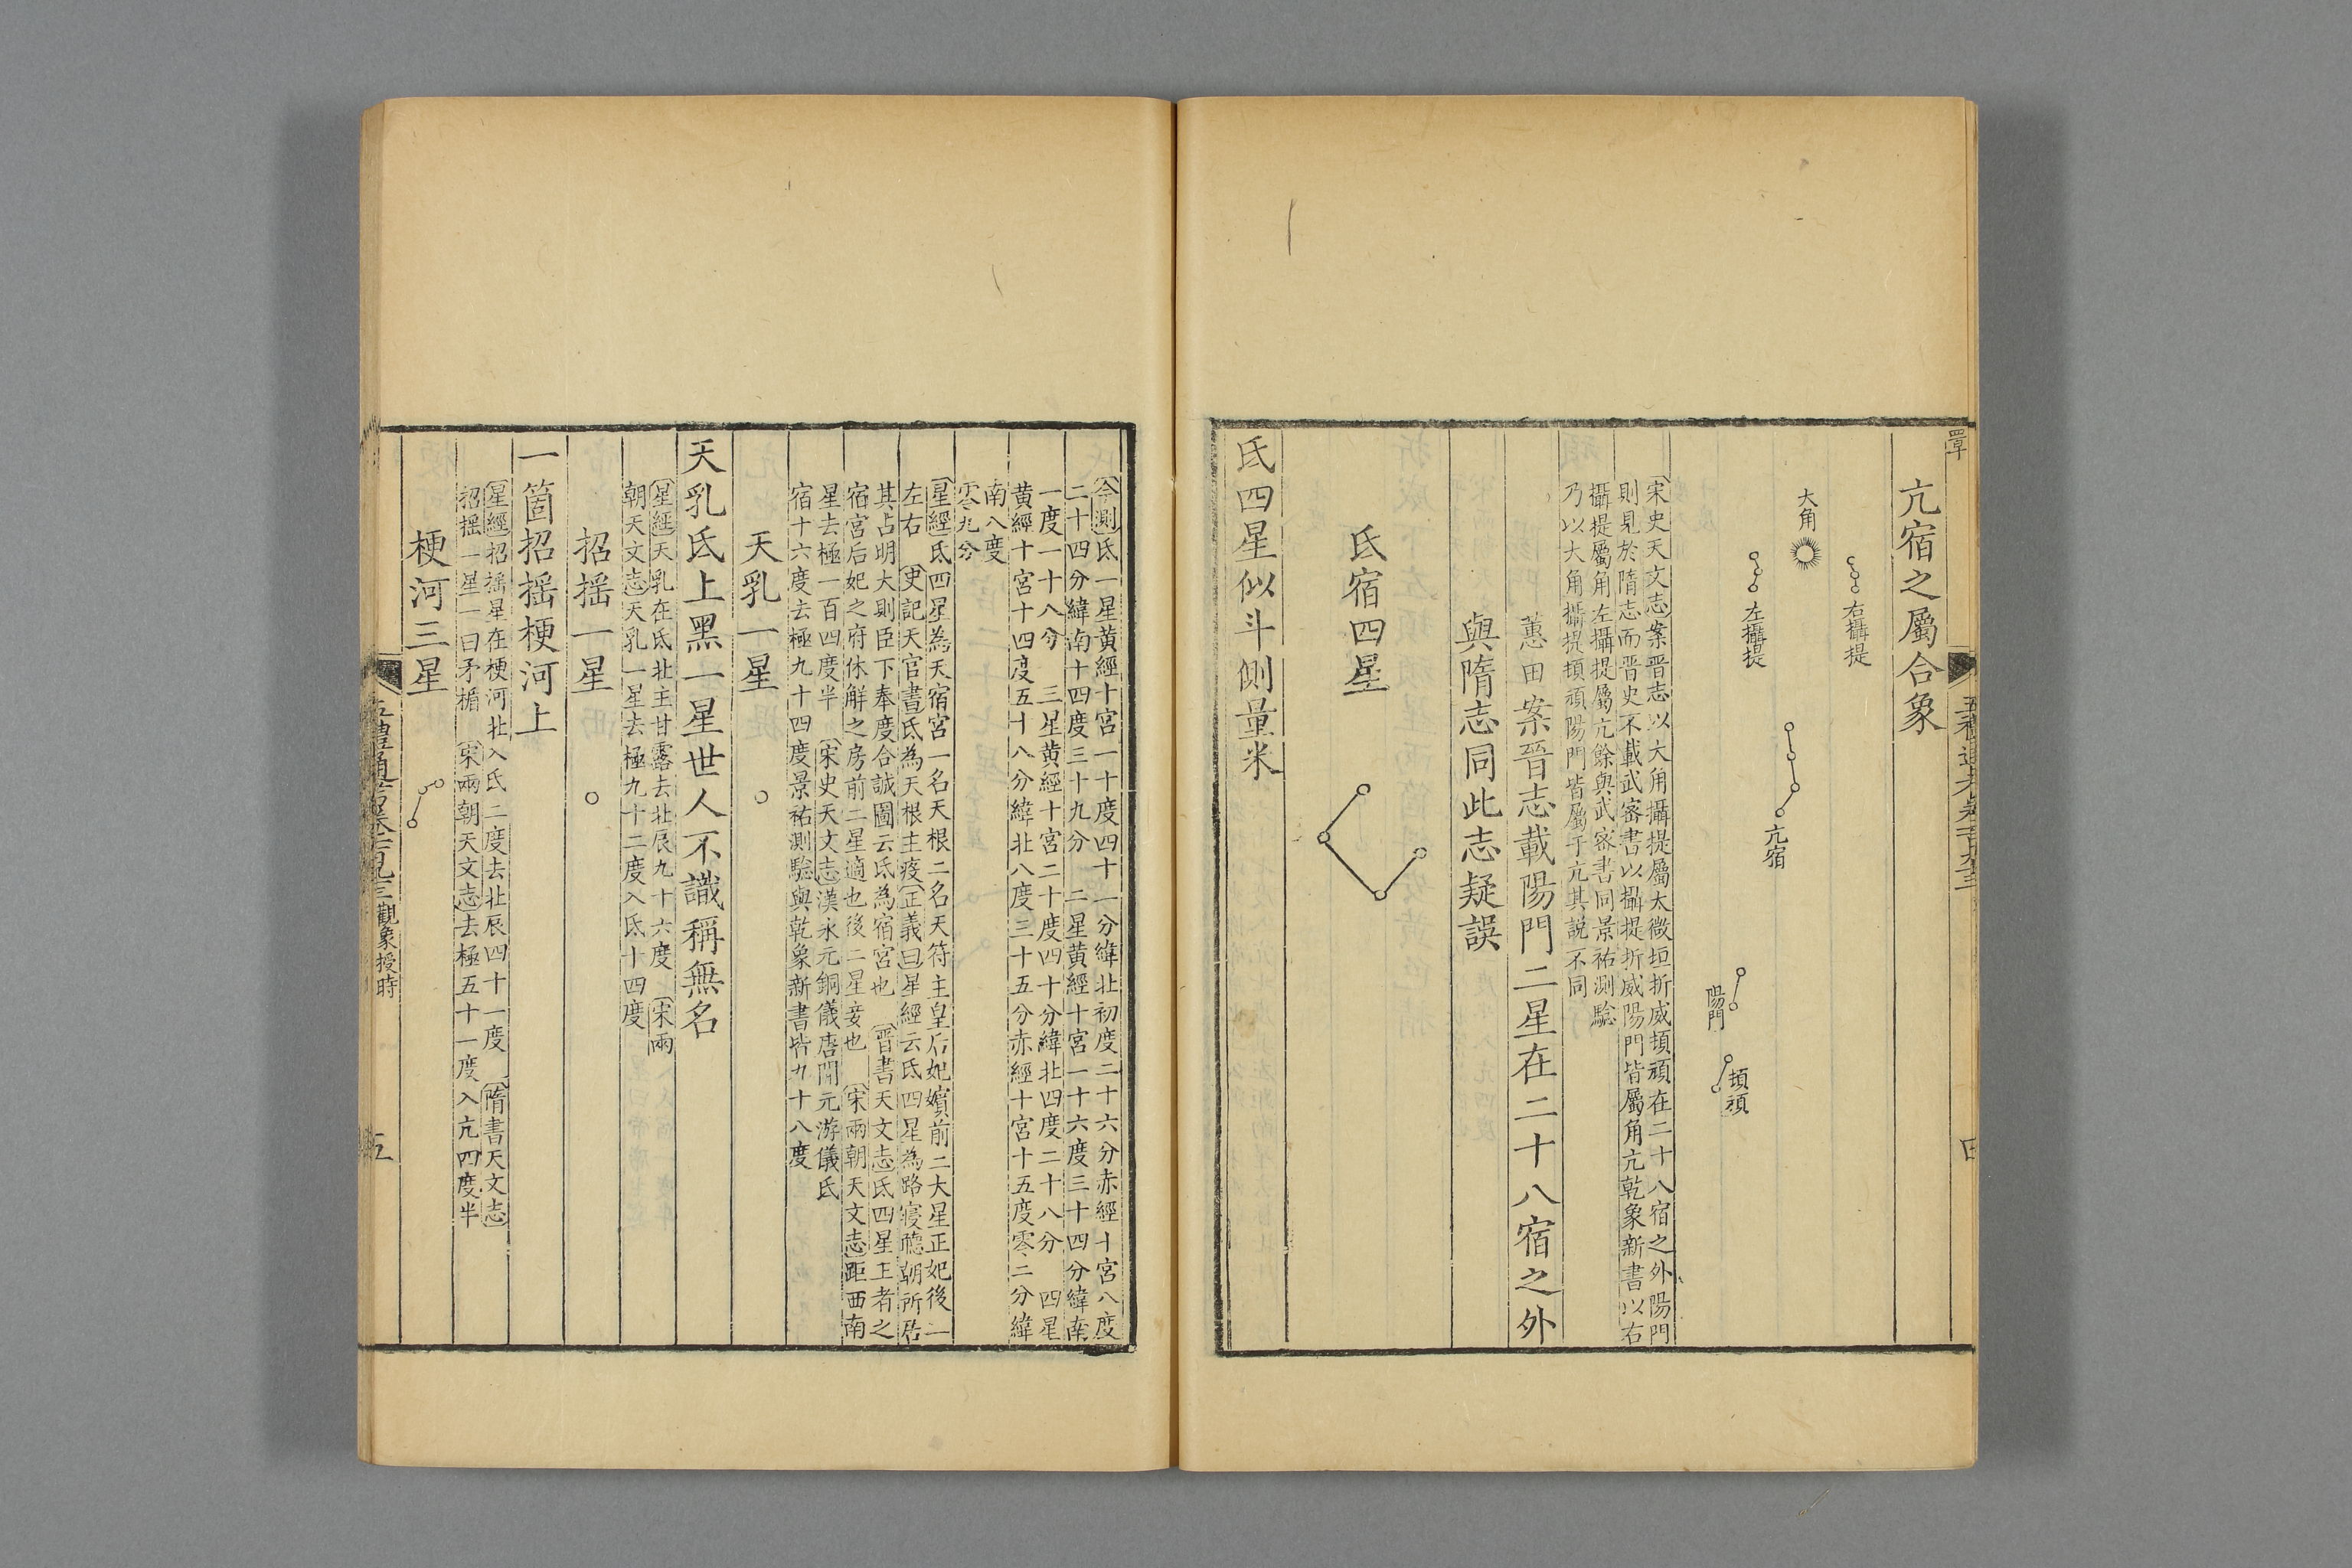 亢宿之屬合象
大角
右攝提
左攝提
亢宿
陽門
頓頑
宋史天文志案晉志以大角攝提屬太微垣折威頓頑在二十八宿之外陽門
則見於隋志而晉史不載武密書以攝提折威陽門皆屬角亢乾象新書以右
攝提屬角左攝提屬亢餘與武密書同景祐測驗
乃以大角攝提頓頑陽門皆屬于亢其說不同
蕙田案晉志載陽門二星在二十八宿之外
與隋志同此志疑誤
氐宿四星
氐四星似斗側量米
今測氐一星黃經十宮一十度四十一分緯北初度二十六分赤經十宮八度
二十四分緯南十四度三十九分　二星黃經十宮一十六度三十四分緯南
一度一十八分　三星黃經十宮二十度四十分緯北四度二十八分　四星
黃經十宮十四度五十八分緯北八度三十五分赤經十宮十五度零二分緯
南八度
零九分
星經氐四星為天宿宮一名天根二名天符主皇后妃嬪前二大星正妃後二
左右　史記天官書氐為天根主疫正義曰星經云氐四星為路寢聽朝所居
其占明大則臣下奉度合誠圖云氐為宿宮也　晉書天文志氐四星王者之
宿宮后妃之府休解之房前二星適也後二星妾也　宋兩朝天文志距西南
星去極一百四度半　宋史天文志漢永元銅儀唐開元游儀氐
宿十六度去極九十四度景祐測驗與乾象新書皆九十八度
天乳一星
天乳氐上黑一星世人不識稱無名
星經天乳在氐北主甘露去北辰九十六度　宋兩
朝天文志天乳一星去極九十二度入氐十四度
招搖一星
一箇招搖梗河上
星經招搖星在梗河北入氐二度去北辰四十一度　隋書天文志
招搖一星一曰矛楯　宋兩朝天文志去極五十一度入亢四度半
梗河三星
觀象授時
五